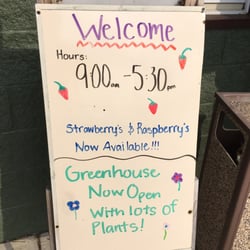 Welcome
Hours:
9:00am - 5:30pm
Strawberry's & Raspberry's
Now Available!!!
Greenhouse
Now Open
With lots of
Plants!